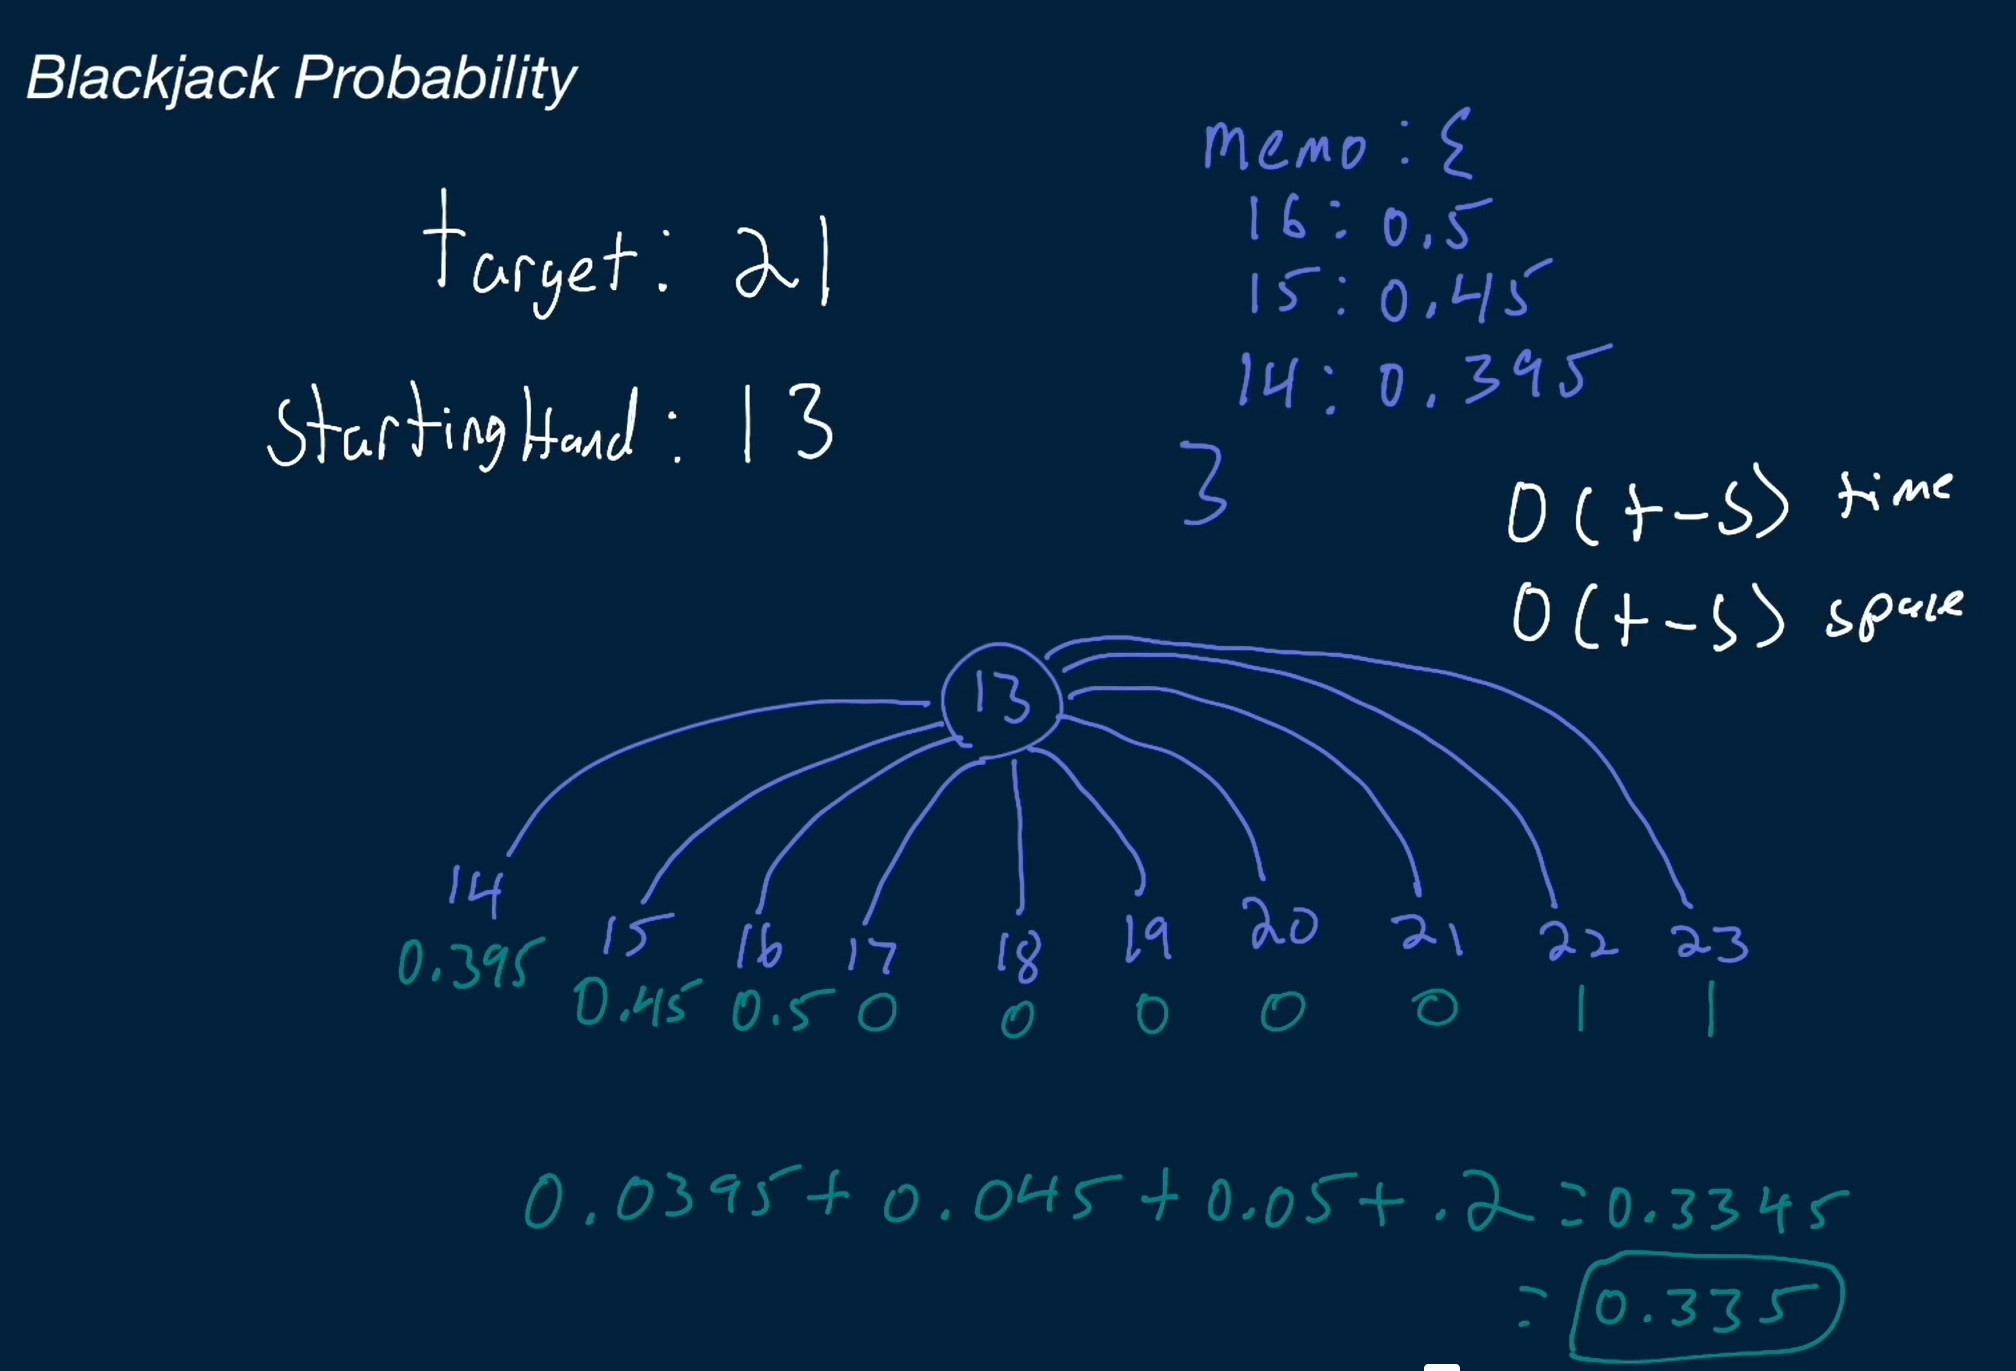 Blackjack Probability
target: 21
startingHand: 13
memo: {
16: 0.5
15: 0.45
14: 0.395
}
O(t-s) time
O(t-s) space
13
14 15 16 17 18 19 20 21 22 23
0.395 0.45 0.5 0 0 0 0 0 1 1
0.0395 + 0.045 + 0.05 + .2 = 0.3345
= 0.335